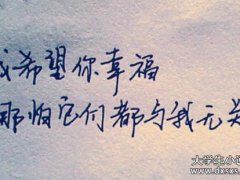 我希望你幸福
那怕它们都与我无关
大学生小说
www.dxsxs